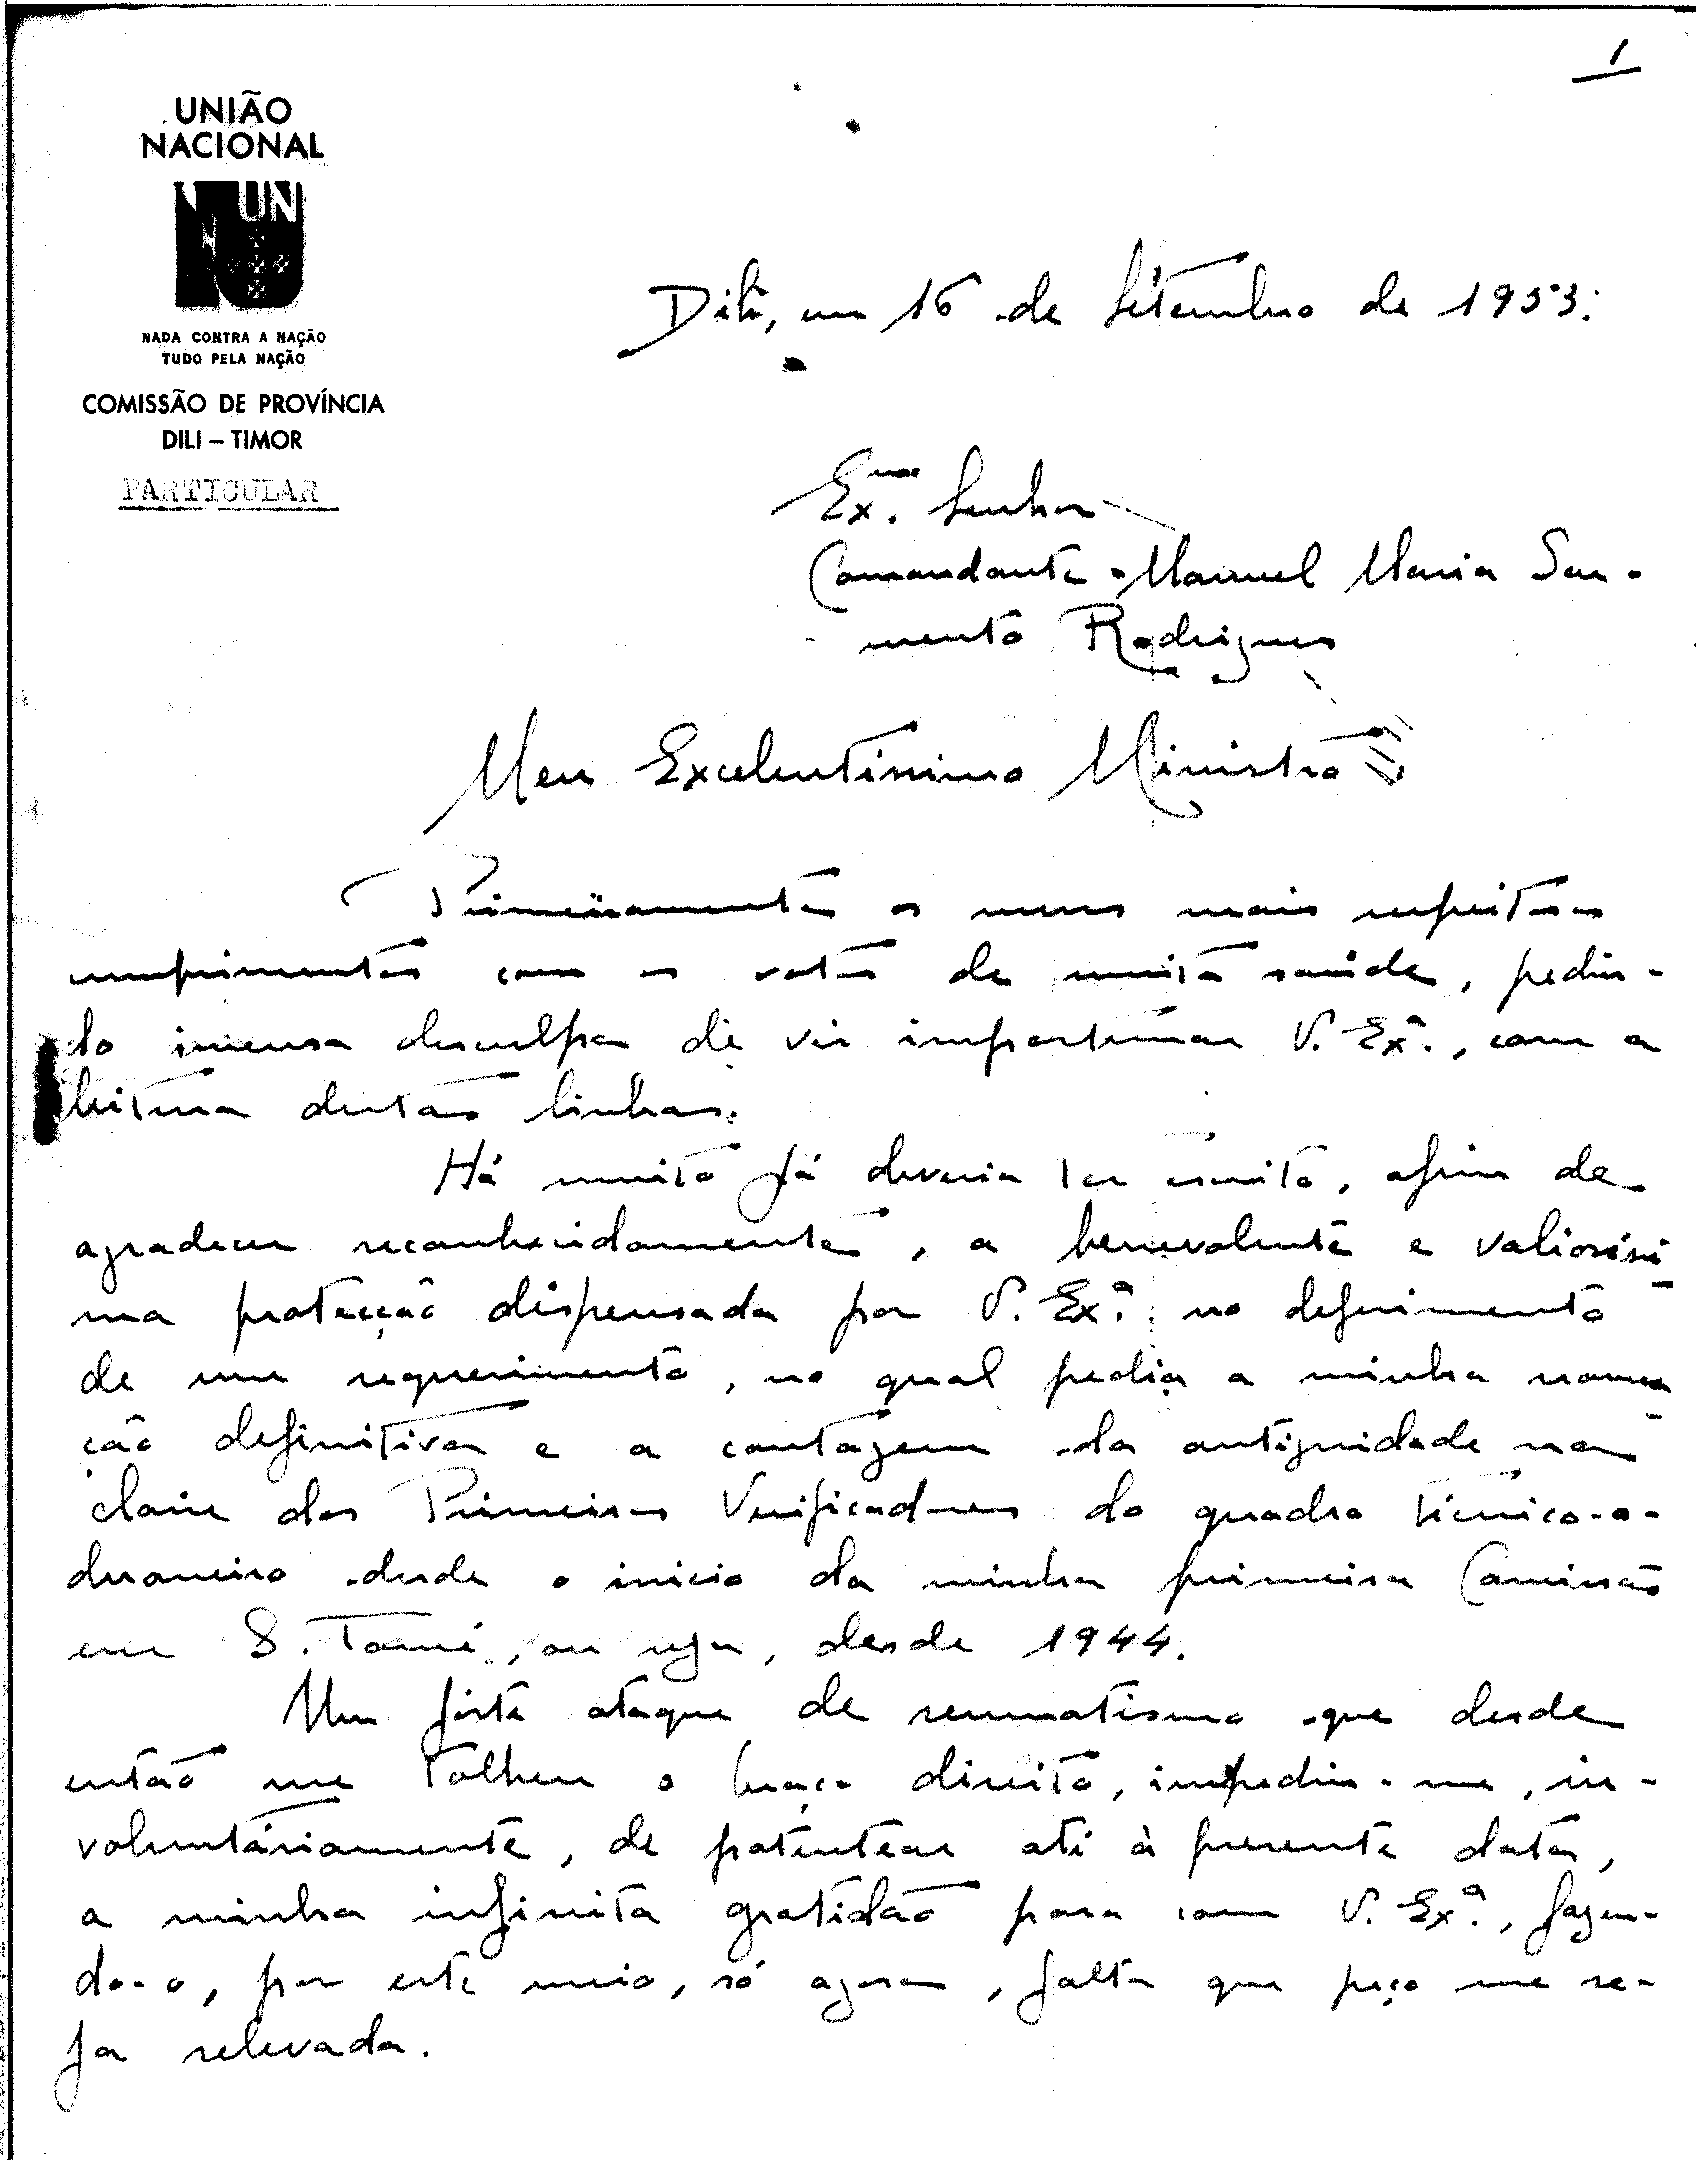 1
UNIÃO
NACIONAL
UN
NADA CONTRA A NAÇÃO
TUDO PELA NAÇÃO
COMISSÃO DE PROVÍNCIA
DILI – TIMOR
PARTICULAR
Dili, em 16 de Setembro de 1953.
Exmo. Senhor
Comandante Manuel Maria Sar-
mento Rodrigues
Meu Excelentíssimo Ministro
Primeiramente os meus mais respeitosos
cumprimentos com os votos de muita saúde, pedin-
do imensa desculpa de vir importunar V. Exª., com a
leitura destas linhas.
Há muito já deveria ter escrito, afim de
agradecer reconhecidamente, a benevolente e valiosíssi
ma protecção dispensada por V. Exª. no deferimento
de um requerimento, no qual pedia a minha nomea
ção definitiva e a contagem da antiguidade na
classe dos Primeiros Verificadores do quadro técnico-a-
duaneiro desde o início da minha primeira Comissão
em S. Tomé, ou seja, desde 1944.
Um forte ataque de reumatismo que desde
então me tolheu o braço direito, impediu-me, in-
voluntáriamente, de patentear até à presente data,
a minha infinita gratidão para com V. Exª., fazen-
do-o, por este meio, só agora, falta que peço me se-
ja relevada.